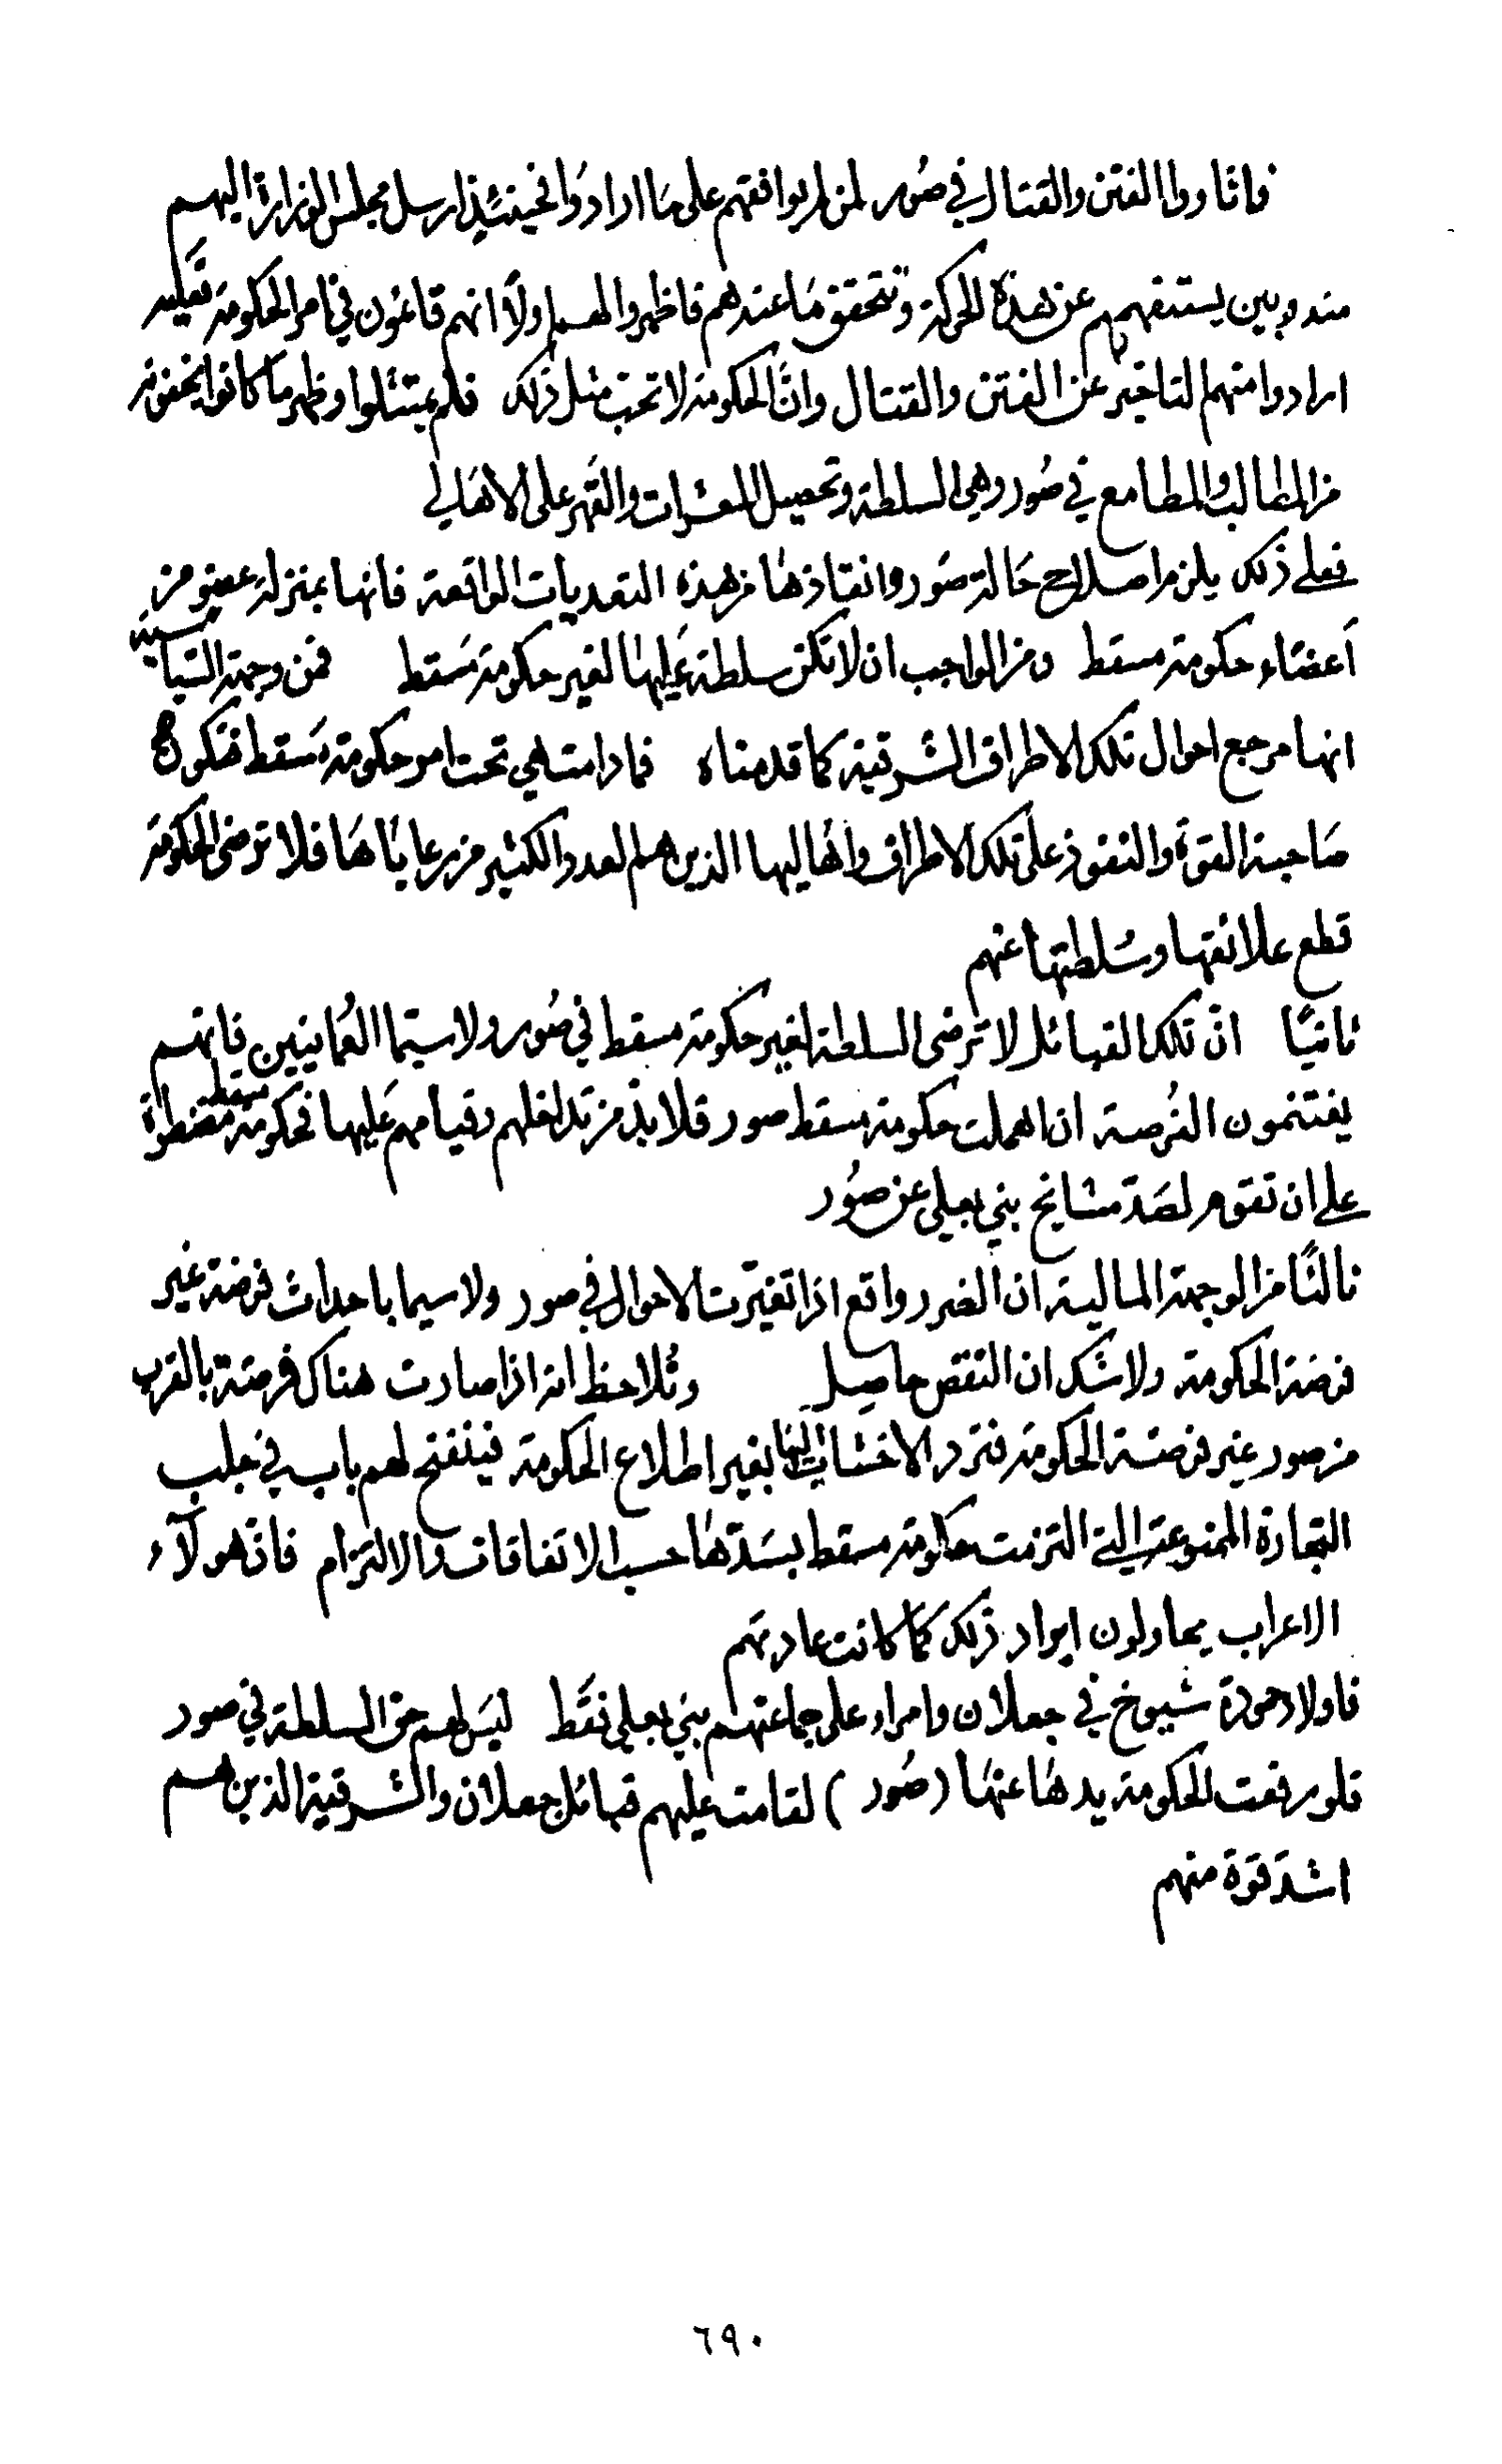 فاثاروا الفتن والقتال في صُور لمن لم يوافقهم على مَا ارادوُا فحينئيذٍ ارسل مجلس الوزارة اليهم
مندوبين يستفهمهم عن هذه الحركة وتتحقق مَا عندهم فاظهروا لهم اولاً انهم قائمُون في امر الحكومة
ارادوا منهم التاخير عن الفتن والقتال وانَّ الحكومة لا تحب مثل ذلك فلم يمتثلوا وظهر ما كانوا يخفونه
من المطالب والمطامع في صُور وهي السلطة وتحصيل العشرات والقهر على الاهَالي
فعلى ذلك يلزم اصلاح حَالة صُور وانقاذهَا من هذه التعديات الواقعة فانها بمنزلة عضو من
اَعضَاء حكومة مسقط ومن الواجب ان لا تكن سلطة عَليهَا لغير حكومة مَسقط فمن وجهة السّياسيّة
انها مرجع احوال تلك الاطراف الشرقية كما قدمناه فما دامت هي تحت امر حكومة مَسقط فتكون
صَاحبة القوة والنفوذ على تلك الاطراف واهَاليها الذين هم العدد الكثير من رعايَاهَا فلا ترضى الحكومَة
قطع علائقها وسُلطتها عنهم
ثانيًا انّ تلك القبائل لا ترضى السلطة لغير حكومة مسقط في صُور ولا سيّما العُمانيين فانهم
يغتنمون الفُرصة ان اهملت حكومة مسقط صور فلا بدّ من تداخلهم وقيامهم عَليها فحكومة مسقط مضطرة
على ان تقوم لصَدّ مشايخ بني بعلي عن صوُر
ثالثًا من الوجهة المالية ان الضرر واقع اذا تغيّرت الاحوال في صور ولا سيما باحداث فرضة غير
فرضة الحكومة ولا شكّ ان النقص حاصِل ونُلاحظ انه اذا صارت هناك فرضة بالقرب
من صور غير فرضة الحكومة فترد الاخشاب اليها بغير اطلاع الحكومة فينفتح لهم باب في جلب
التجارة الممنوعة التي التزمت حكومة مسقط بسَدّهَا حسب الاتفاقات والالتزام فانّ هولآء
الاعراب يحاولون ايراد ذلك كما كانت عادتهم
فاولاد حمودة شيوخ في جعلان وامراء على جماعتهم بني بعلي فقَط ليَس لهم حق السلطة في صور
فلو رفعت الحكومة يدهَا عنهَا (صُور) لقامت عليهم قبائل جعلان والشرقية الذين هم
اشدّ قوّة منهم
٦٩٠